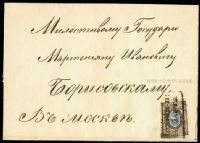 Милостивому Государю
Мартемьяну Ивановичу
Борисовскому.
Въ Москвѣ.